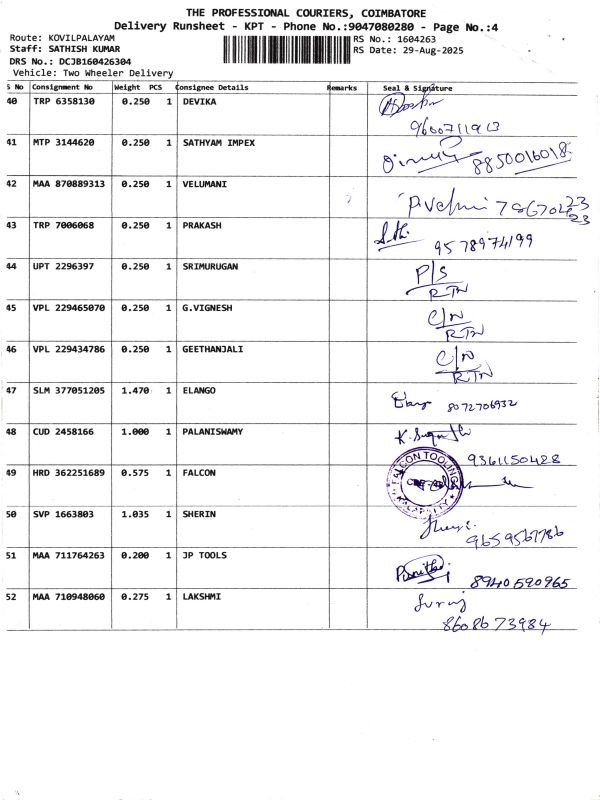 THE PROFESSIONAL COURIERS, COIMBATORE
Delivery Runsheet - KPT - Phone No.:9047080280 - Page No.:4
Route: KOVILPALAYAM
RS No.: 1604263
Staff: SATHISH KUMAR
RS Date: 29-Aug-2025
DRS No.: DCJB160426304
Vehicle: Two Wheeler Delivery
S No Consignment No Weight PCS Consignee Details Remarks Seal & Signature
40 TRP 6358130 0.250 1 DEVIKA
9600711913
41 MTP 3144620 0.250 1 SATHYAM IMPEX
8850016018
42 MAA 870889313 0.250 1 VELUMANI
43 TRP 7006068 0.250 1 PRAKASH
9578974199
44 UPT 2296397 0.250 1 SRIMURUGAN P/S
RTN
45 VPL 229465070 0.250 1 G.VIGNESH C/N
RTN
46 VPL 229434786 0.250 1 GEETHANJALI C/N
RTN
47 SLM 377051205 1.470 1 ELANGO
8072706932
48 CUD 2458166 1.000 1 PALANISWAMY
9361150428
49 HRD 362251689 0.575 1 FALCON
FALCON TOOLING
50 SVP 1663803 1.035 1 SHERIN
9659567786
51 MAA 711764263 0.200 1 JP TOOLS
8940590965
52 MAA 710948060 0.275 1 LAKSHMI Suraj
8608673984